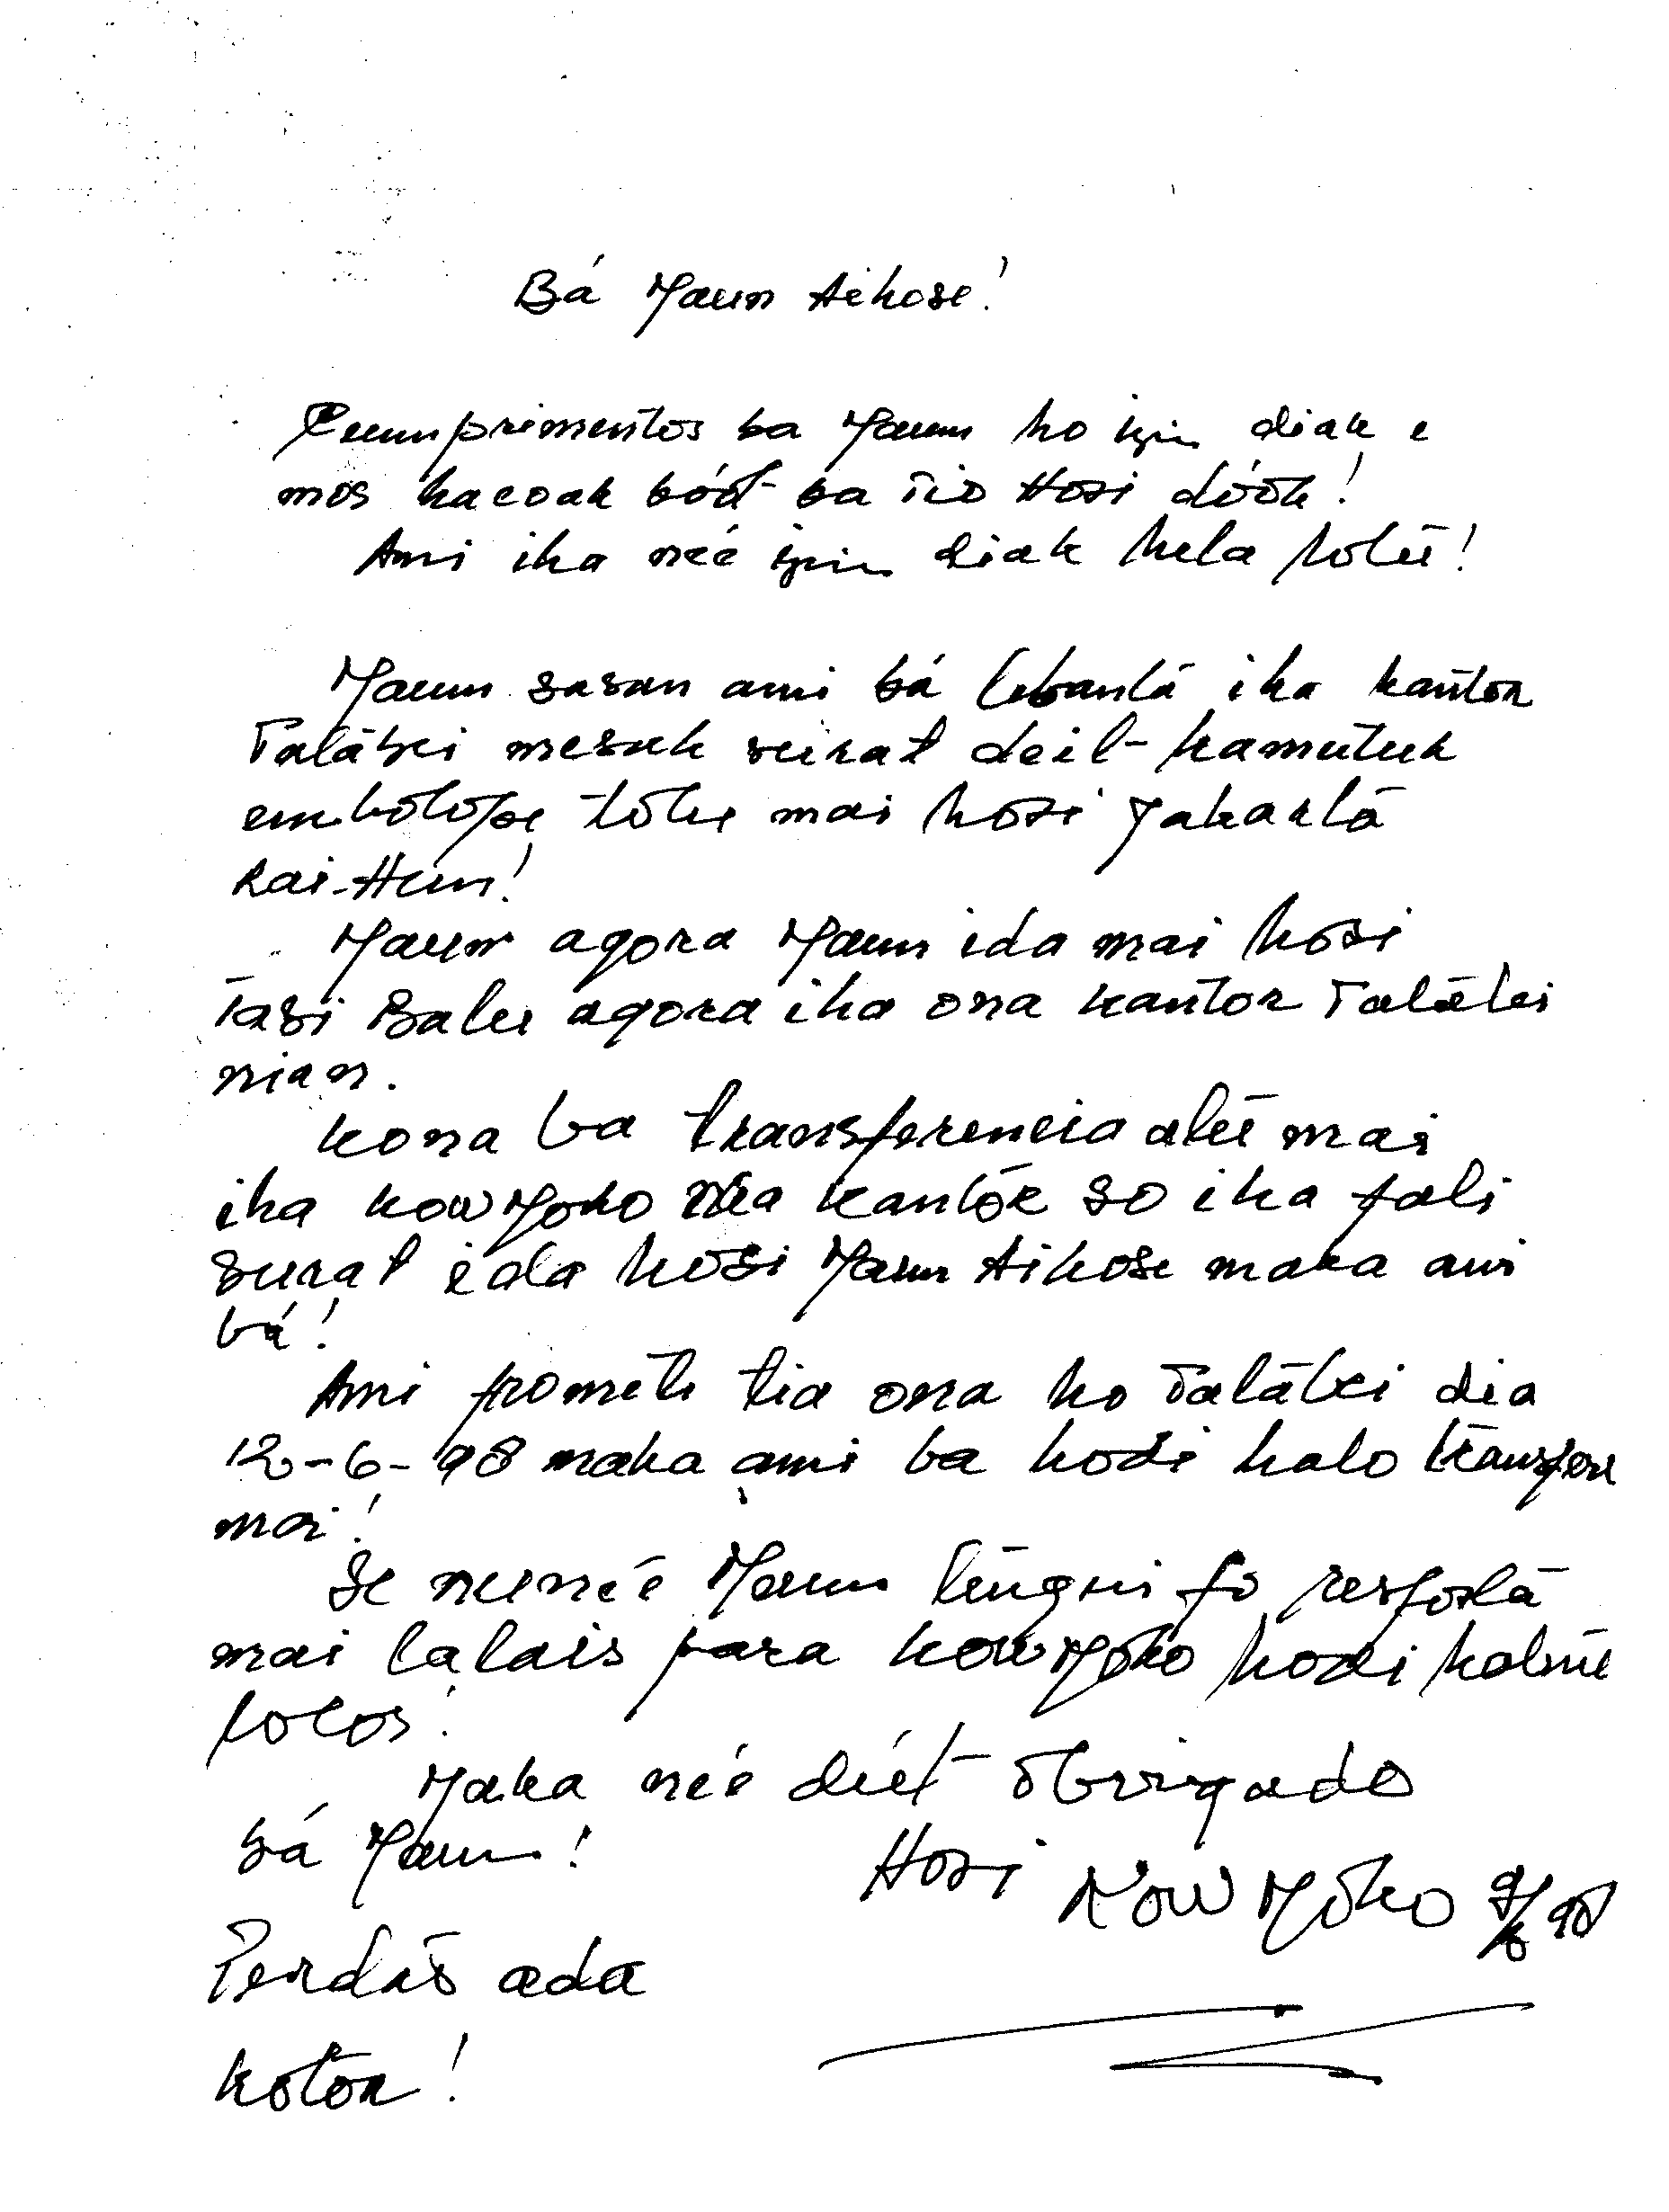 Bá Maun Aikose!
Cumprimentos ba Maun ho isin diak e
mos hacoak bóót ba Tio Hosi dóók!
Ami iha neé isin diak hela hotu!
Maun sasan ami bá lebantá iha kantor
Talábei mesak surat deit kamutuk
embolope toke mai hosi Jakarta
Rai-Hun!
Maun agora Maun ida mai hosi
Tasi Balu agora iha ona kantor Talábei
nian.
kona ba transferencia atu mai
iha kow Moko nia kantór so iha fali
surat ida hosi Maun Aikose maka ami
bá!
Ami promete tia ona ho Talábei dia
12-6-98 maka ami ba hodi halo transfere
mai!
Se nuneé Maun fó resposta
mai lalais para kow Moko hodi
lolos!
Maka neé déét Obrigado
bá Maun!
Hosi Kow Moko 9/6 98
ada
kotor!